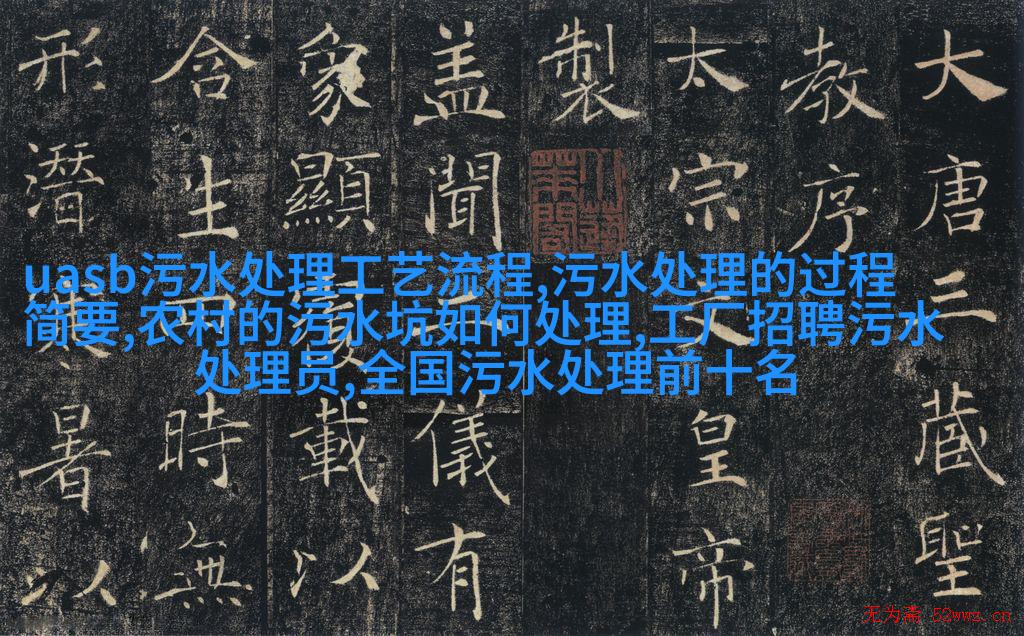 大唐三藏聖
教序
太宗文皇帝
製
盖聞二儀有
象顯覆載以
含生四時無
形潛寒暑以
uasb污水处理工艺流程,污水处理的过程
简要,农村的污水坑如何处理,工厂招聘污水
处理员,全国污水处理前十名
无为斋 52wwz.cn